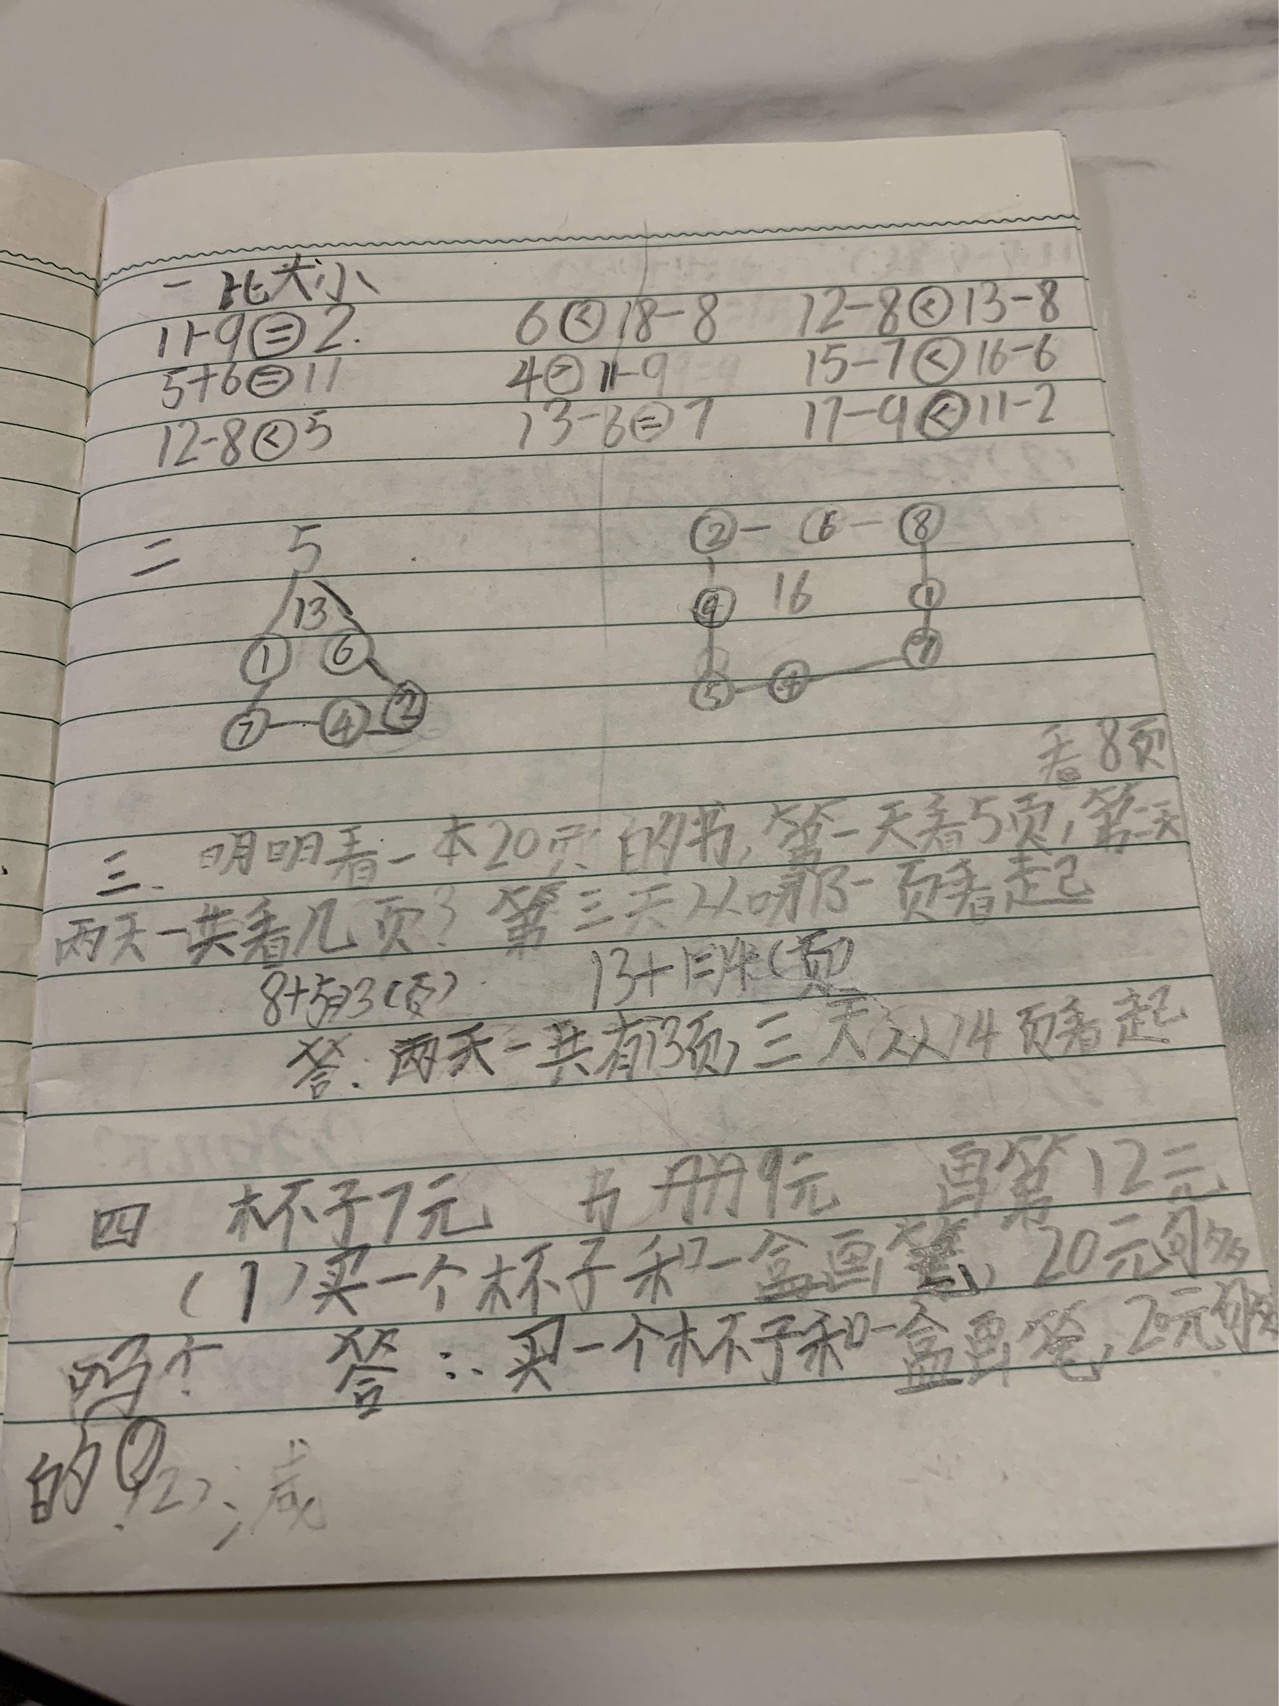 一 比大小
11-9=2. 6<18-8 12-8<13-8
5+6=11 4>11-9 15-7<16-6
12-8<5 13-6=7 17-9<11-2
二 5 ②-⑥-⑧
13 ⑨ 16 ①
① ⑥ ⑦
⑦-④-② ⑤-④
看8页
三、明明看一本20页的书,第一天看5页,第二天
两天一共看几页?第三天从哪一页看起
8+5=13(页) 13+1=14(页)
答:两天一共有13页,三天从14页看起
四 杯子7元 书册9元 画笔12元
(1)买一个杯子和一盒画笔,20元够
吗? 答:买一个杯子和一盒画笔,20元够
的。(2)、减